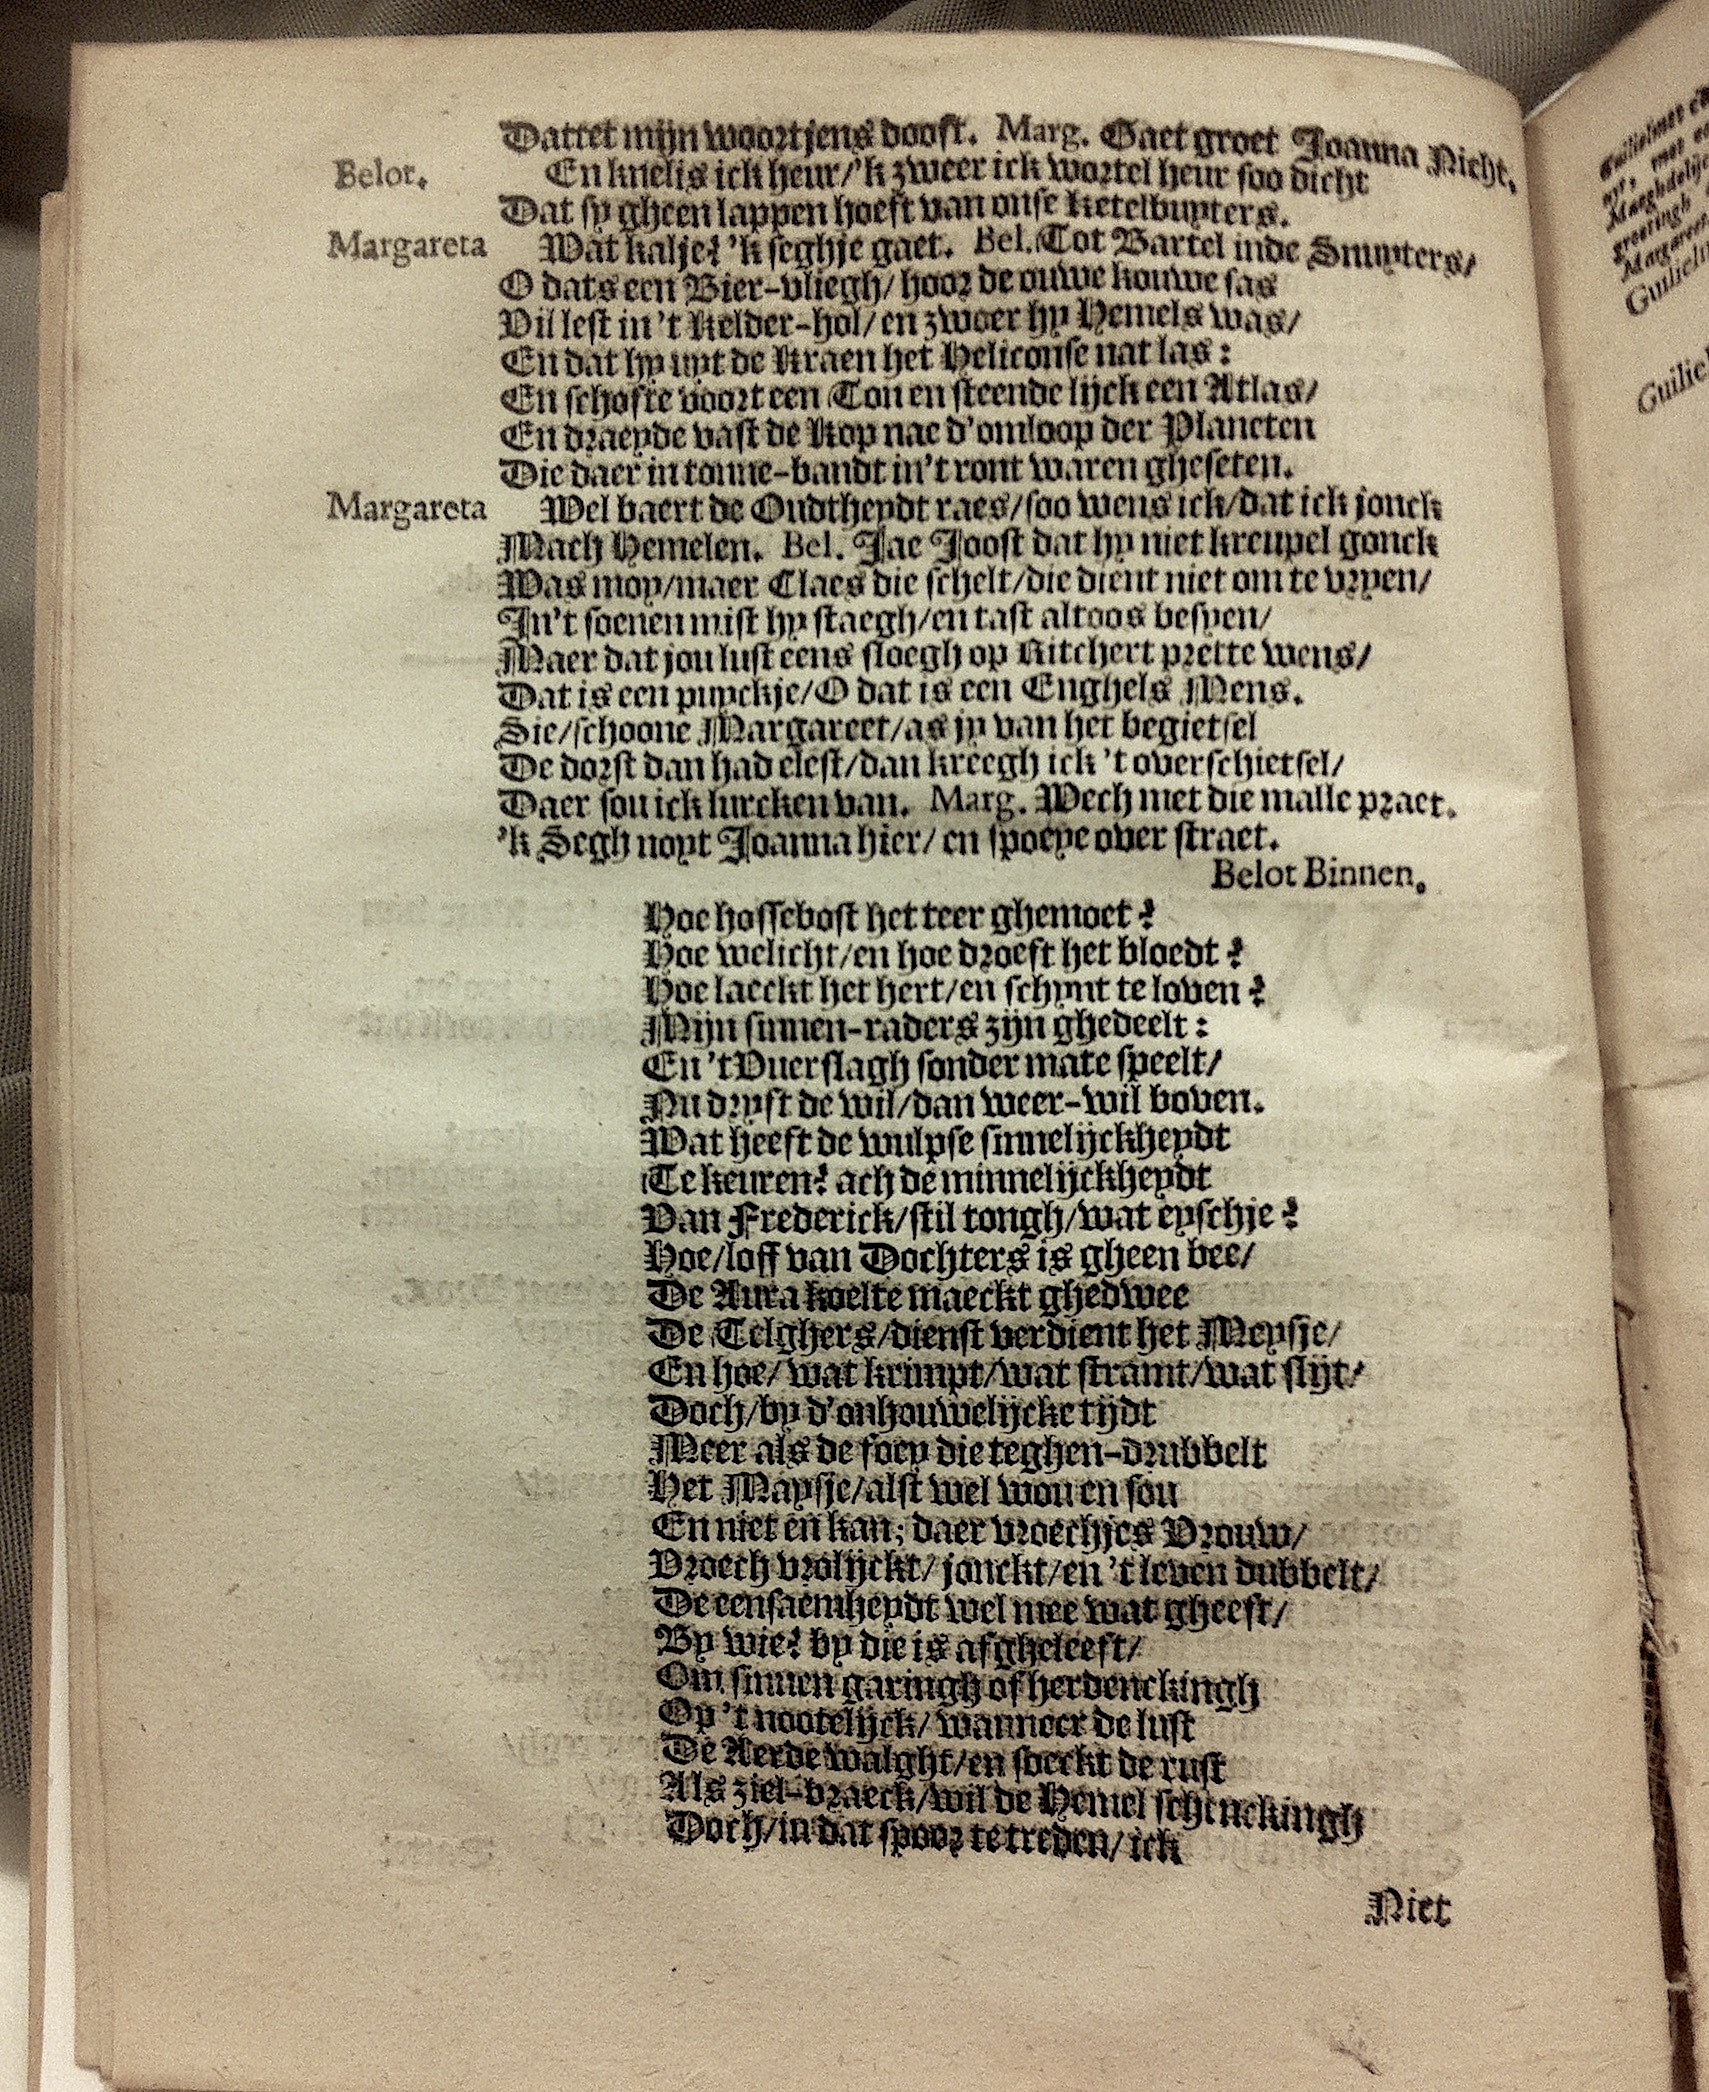 Dattet mijn woortjens dooft. Marg. Gaet groet Joanna Nicht,
Belot. En knelis ick heur/'k zweer ick wortel heur soo dicht
Dat sy gheen lappen hoeft van onse Ketelbuyters.
Margareta Wat kalje? 'k seghje gaet. Bel. Tot Bartel inde Snuyters/
O dats een Bier-vliegh/ hoor de ouwe kouwe sas
Vil lest in 't Kelder-hol/ en zwoer hy Hemels was/
En dat hy uyt de Kraen het Heliconse nat las:
En schofte voort een Ton en steende lijck een Atlas/
En draeyde vast de Kop nae d'omloop der Planeten
Die daer in tonne-bandt in't ront waren gheseten.
Margareta Wel baert de Oudtheydt raes/soo wens ick/dat ick jonck
Mach Hemelen. Bel. Jae Joost dat hy niet kreupel gonck
Was moy/maer Claes die schelt/die dient niet om te vryen/
In't soenen mist hy staegh/en tast altoos besyen/
Maer dat jou lust eens sloegh op Ritchert prette wens/
Dat is een puyckje/O dat is een Enghels Mens.
Sie/schoone Margareet/as jy van het begietsel
De dorst dan had elest/dan kreegh ick 't overschietsel/
Daer sou ick lurcken van. Marg. Wech met die malle praet.
'k Segh noyt Joanna hier/ en spoeye over straet.
Belot Binnen.
Hoe hossebost het teer ghemoet?
Hoe welicht/en hoe droeft het bloedt?
Hoe laeckt het hert/en schynt te loven?
Mijn sinnen-raders zijn ghedeelt:
En 't Vuerslagh sonder mate speelt/
Nu dryft de wil/dan weer-wil boven.
Wat heeft de wulpse sinnelijckheydt
Te keuren? ach de minnelijckheydt
Van Frederick/stil tongh/wat eyschje?
Hoe/loff van Dochters is gheen bee/
De Aura koelte maeckt ghedwee
De Telghers/dienst verdient het Meysje/
En hoe/ wat krimpt/wat stramt/wat slijt/
Doch/by d'onhouwelijcke tijdt
Meer als de foey die teghen-drubbelt
Het Maysje/alst wel wou en sou
En niet en kan; daer vroechjes Vrouw/
Vroech vrolijckt/ jonckt/en 't leven dubbelt/
De eensaemheydt wel mee wat gheeft/
By wie? by die is afgheleeft/
Om sinnen garingh of herdenckingh
Op 't nootelijck/ wanneer de lust
De Aerde walght/en soeckt de rust
Als ziel-braeck/wil de Hemel schenckingh
Doch/in dat spoor te treden/ ick
Niet